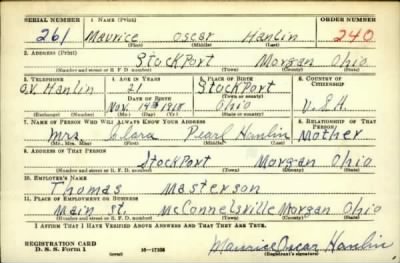 SERIAL NUMBER 1. NAME (Print) ORDER NUMBER
261 Maurice Oscar Hanlin 240
(First) (Middle) (Last)
2. ADDRESS (Print)
Stockport Morgan Ohio
(Number and street or R. F. D. number) (Town) (County) (State)
3. TELEPHONE 4. AGE IN YEARS 5. PLACE OF BIRTH 6. COUNTRY OF CITIZENSHIP
O.V. Hanlin 21 Stockport
DATE OF BIRTH (Town or county)
Nov. 14th 1918 Ohio U.S.A.
(Exchange) (Number) (Mo.) (Day) (Yr.) (State or country)
7. NAME OF PERSON WHO WILL ALWAYS KNOW YOUR ADDRESS 8. RELATIONSHIP OF THAT PERSON
Mrs. Clara Pearl Hanlin Mother
(Mr., Mrs., Miss) (First) (Middle) (Last)
9. ADDRESS OF THAT PERSON
Stockport Morgan Ohio
(Number and street or R. F. D. number) (Town) (County) (State)
10. EMPLOYER'S NAME
Thomas Masterson
11. PLACE OF EMPLOYMENT OR BUSINESS
Main St. McConnelsville Morgan Ohio
(Number and street or R. F. D. number) (Town) (County) (State)
I AFFIRM THAT I HAVE VERIFIED ABOVE ANSWERS AND THAT THEY ARE TRUE.
REGISTRATION CARD
D. S. S. Form 1 Maurice Oscar Hanlin
(Registrant's signature)